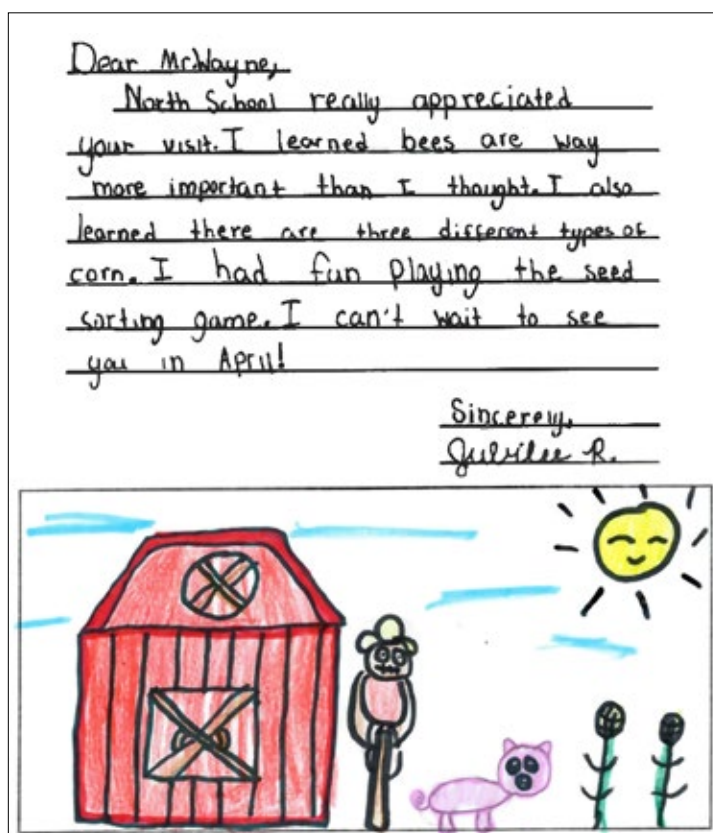 Dear Mr.Wayne,
North School really appreciated
your visit. I learned bees are way
more important than I thought. I also
learned there are three different types of
corn. I had fun playing the seed
sorting game. I can't wait to see
you in April!
Sincerely,
Jubilee R.